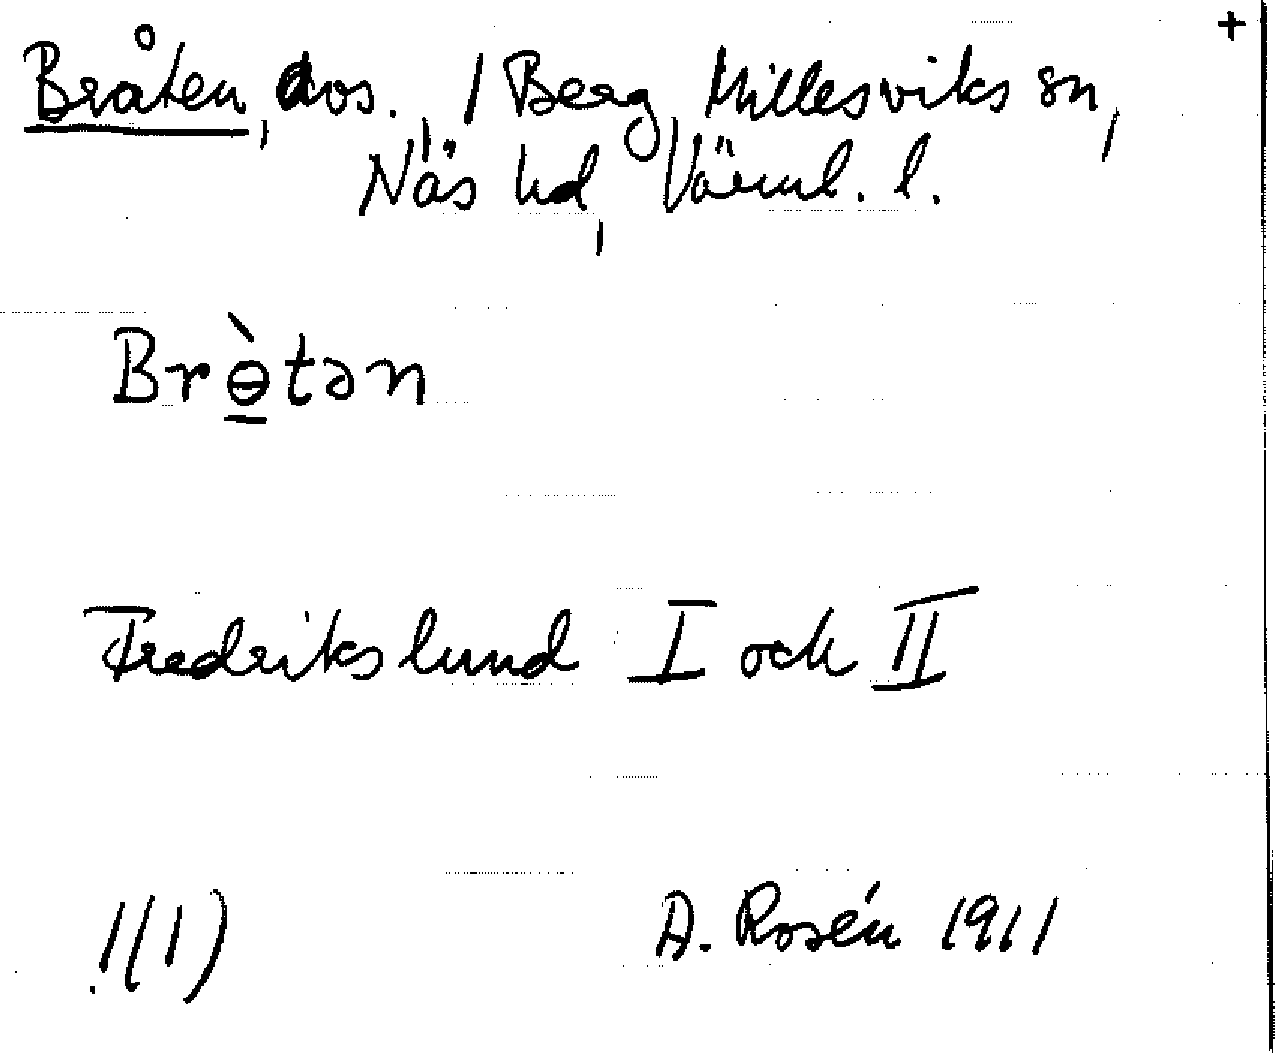 +
Bråten, aos. / Berg, Millesviks sn,
Näs hd, Värml. l.
Brɵ̲̀tən
Fredrikslund I och II
1(1)
A. Rosén 1911